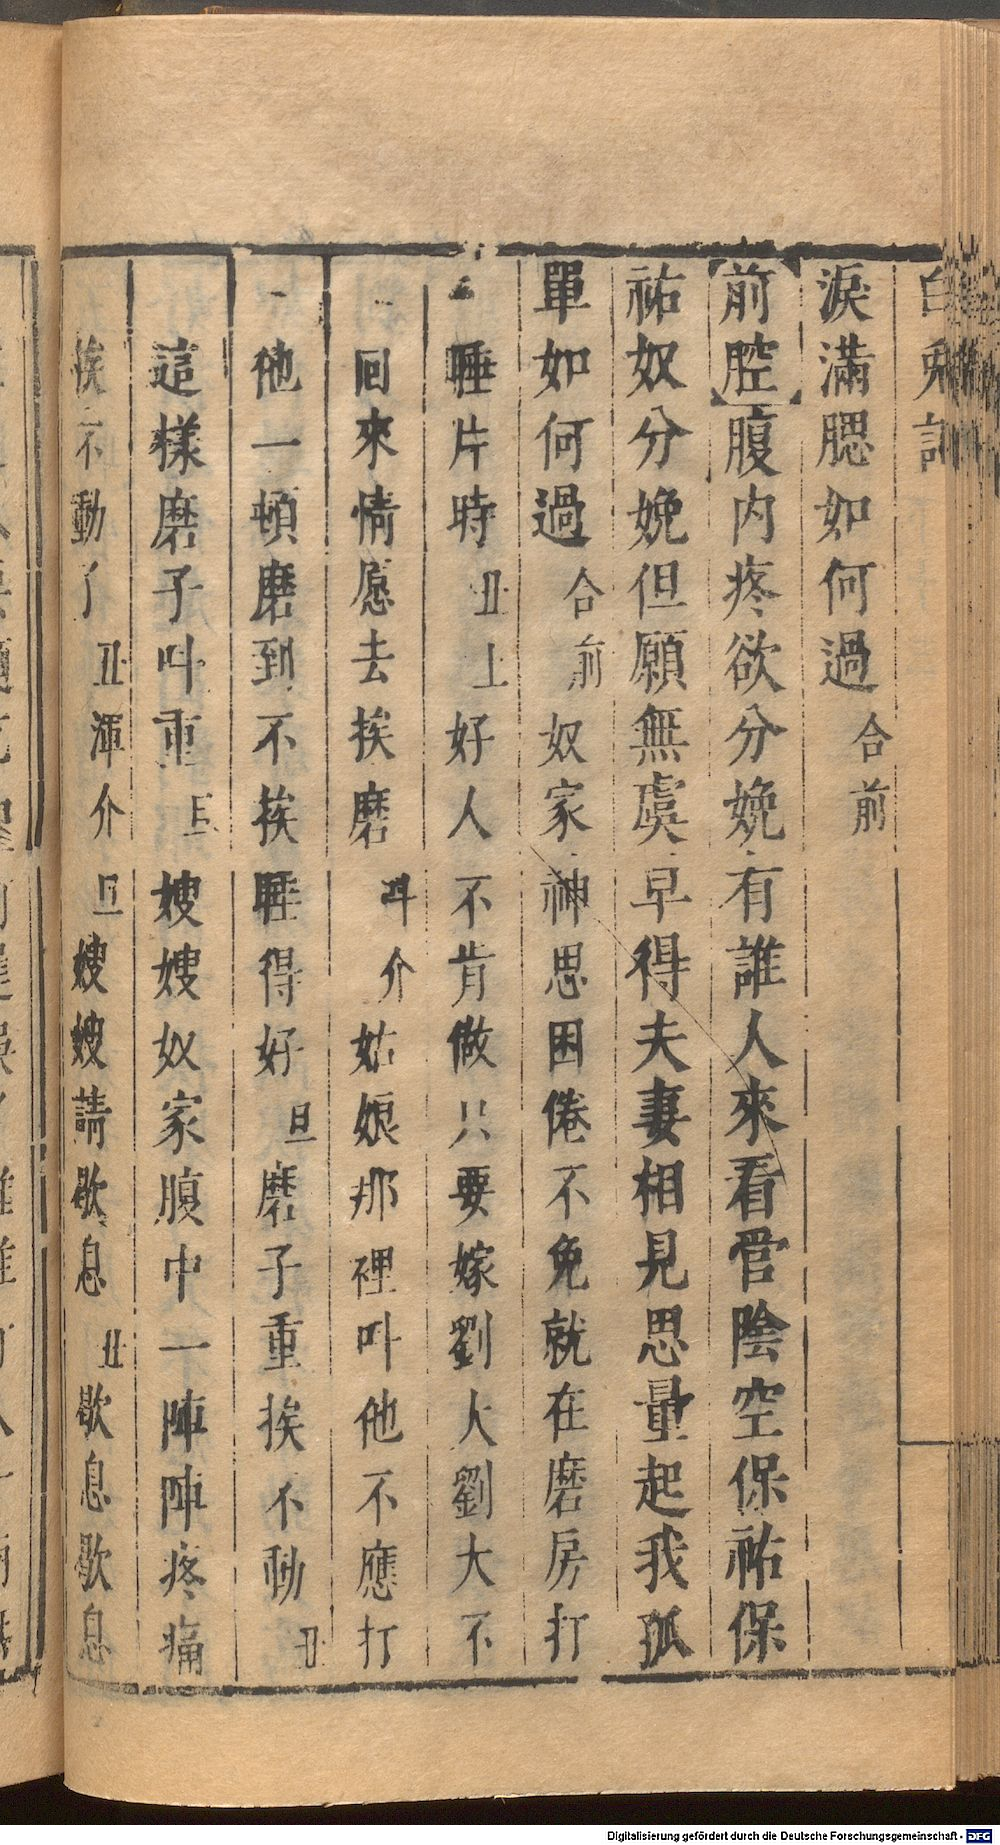 白兎記
淚滿腮如何過合前
【前腔】腹内疼欲分娩有誰人來看管陰空保祐保
祐奴分娩但願無虞早得夫妻相見思量起我孤
單如何過合前奴家神思困倦不免就在磨房打
睡片時丑上好人不肯做只要嫁劉大劉大不
回來情愿去挨磨叫介姑娘那裡叫他不應打
他一頓磨到不挨睡得好旦磨子重挨不動丑
這樣磨子叫重旦嫂嫂奴家腹中一陣陣疼痛
挨不動了丑渾介旦嫂嫂請歇息丑歇息歇息
Digitalisierung gefördert durch die Deutsche Forschungsgemeinschaft - DFG